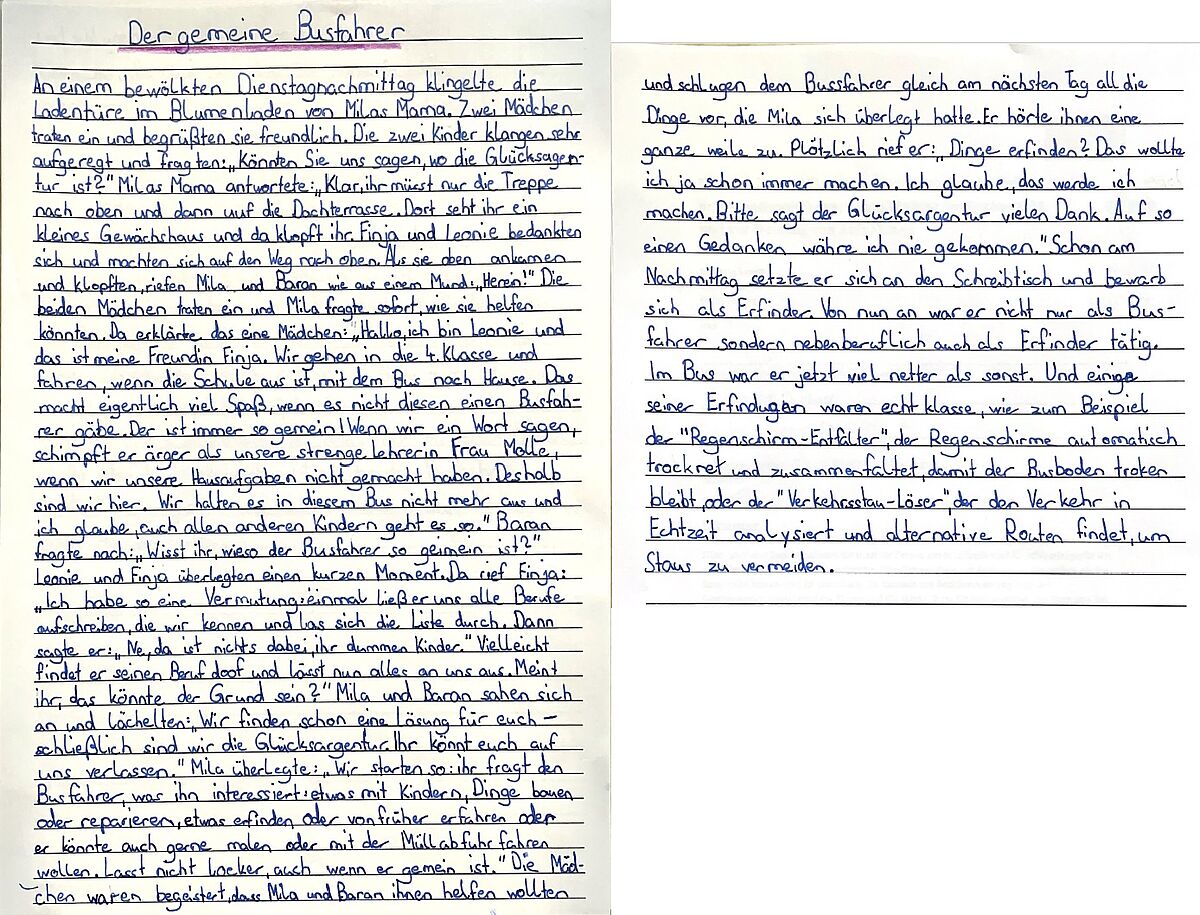 Der gemeine Busfahrer
An einem bewölkten Dienstagnachmittag klingelte die
Ladentüre im Blumenladen von Milas Mama. Zwei Mädchen
traten ein und begrüßten sie freundlich. Die zwei Kinder klangen sehr
aufgeregt und fragten: „Könnten Sie uns sagen, wo die Glücksagen-
tur ist?" Milas Mama antwortete: „Klar, ihr müsst nur die Treppe
nach oben und dann auf die Dachterrasse. Dort seht ihr ein
kleines Gewächshaus und da klopft ihr. Finja und Leonie bedankten
sich und machten sich auf den Weg nach oben. Als sie oben ankamen
und klopften, riefen Mila und Baran wie aus einem Mund: „Herein!" Die
beiden Mädchen traten ein und Mila fragte sofort, wie sie helfen
könnten. Da erklärte das eine Mädchen: „Hallo, ich bin Leonie und
das ist meine Freundin Finja. Wir gehen in die 4. Klasse und
fahren, wenn die Schule aus ist, mit dem Bus nach Hause. Das
macht eigentlich viel Spaß, wenn es nicht diesen einen Busfah-
rer gäbe. Der ist immer so gemein! Wenn wir ein Wort sagen,
schimpft er ärger als unsere strenge Lehrerin Frau Molle,
wenn wir unsere Hausaufgaben nicht gemacht haben. Deshalb
sind wir hier. Wir halten es in diesem Bus nicht mehr aus und
ich glaube, auch allen anderen Kindern geht es so." Baran
fragte nach: „Wisst ihr, wieso der Busfahrer so geimein ist?"
Leonie und Finja überlegten einen kurzen Moment. Da rief Finja:
„Ich habe so eine Vermutung: einmal ließ er uns alle Berufe
aufschreiben, die wir kennen und las sich die Liste durch. Dann
sagte er: „Ne, da ist nichts dabei, ihr dummen Kinder." Vielleicht
findet er seinen Beruf doof und lässt nun alles an uns aus. Meint
ihr, das könnte der Grund sein?" Mila und Baran sahen sich
an und lächelten: „Wir finden schon eine Lösung für euch –
schließlich sind wir die Glücksargentur. Ihr könnt euch auf
uns verlassen." Mila überlegte: „Wir starten so: ihr fragt den
Busfahrer, was ihn interessiert: etwas mit Kindern, Dinge bauen
oder reparieren, etwas erfinden oder von früher erfahren oder
er könnte auch gerne malen oder mit der Müllabfuhr fahren
wollen. Lasst nicht locker, auch wenn er gemein ist." Die Mäd-
chen waren begeistert, dass Mila und Baran ihnen helfen wollten
und schlugen dem Bussfahrer gleich am nächsten Tag all die
Dinge vor, die Mila sich überlegt hatte. Er hörte ihnen eine
ganze weile zu. Plötzlich rief er: „Dinge erfinden? Das wollte
ich ja schon immer machen. Ich glaube, das werde ich
machen. Bitte sagt der Glücksargentur vielen Dank. Auf so
einen Gedanken währe ich nie gekommen." Schon am
Nachmittag setzte er sich an den Schreibtisch und bewarb
sich als Erfinder. Von nun an war er nicht nur als Bus-
fahrer sondern nebenberuflich auch als Erfinder tätig.
Im Bus war er jetzt viel netter als sonst. Und einige
seiner Erfindugen waren echt klasse, wie zum Beispiel
der "Regenschirm-Entfalter", der Regenschirme automatisch
trocknet und zusammenfaltet, damit der Busboden troken
bleibt, oder der "Verkehrsstau-Löser", der den Verkehr in
Echtzeit analysiert und alternative Routen findet, um
Staus zu vermeiden.